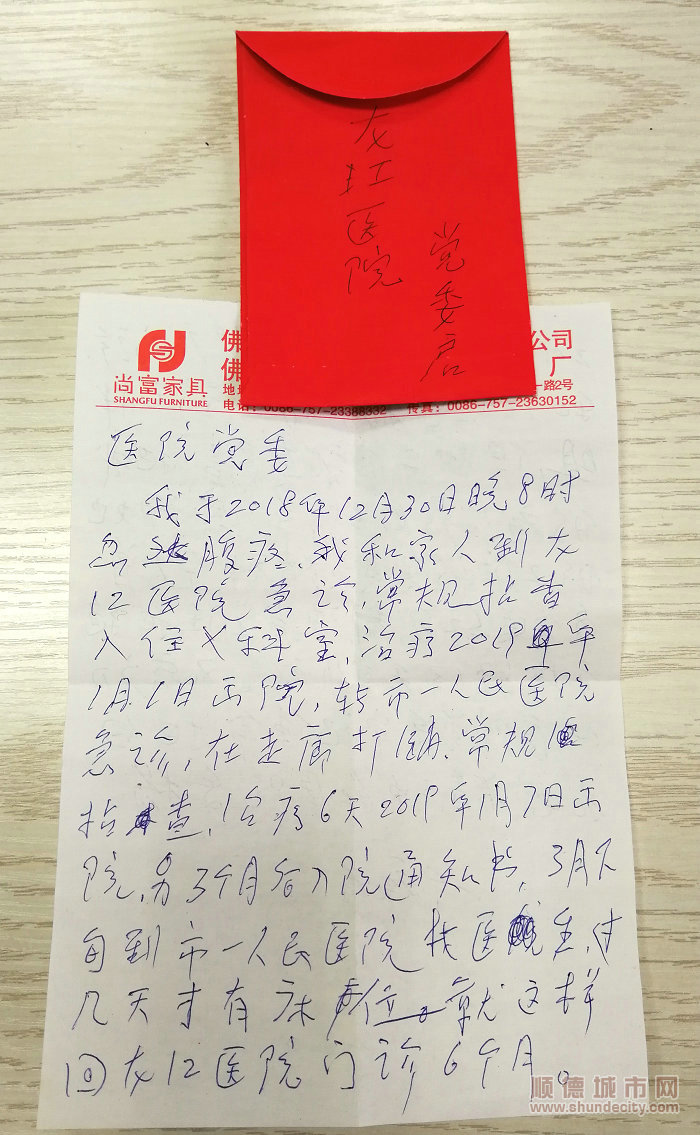 龙江医院
党委启
尚富家具
SHANGFU FURNITURE
佛
公司
佛
厂
地
一路2号
电话：0086-757-23388332 传真：0086-757-23630152
医院党委
我于2018年12月30日晚8时
忽然腹疼,我和家人到龙
江医院急诊,常规拈查
入住X科室,治疗2019年
1月1日出院,转市一人民医院
急诊,在走廊打
常规
拈查,治疗6天2019年1月7日出
院,另3个月后入院通知书,3月下
旬到市一人民医院找医生,过
几天才有床位。就这样
回龙江医院门诊6个月。
顺德城市网
www.shundecity.com